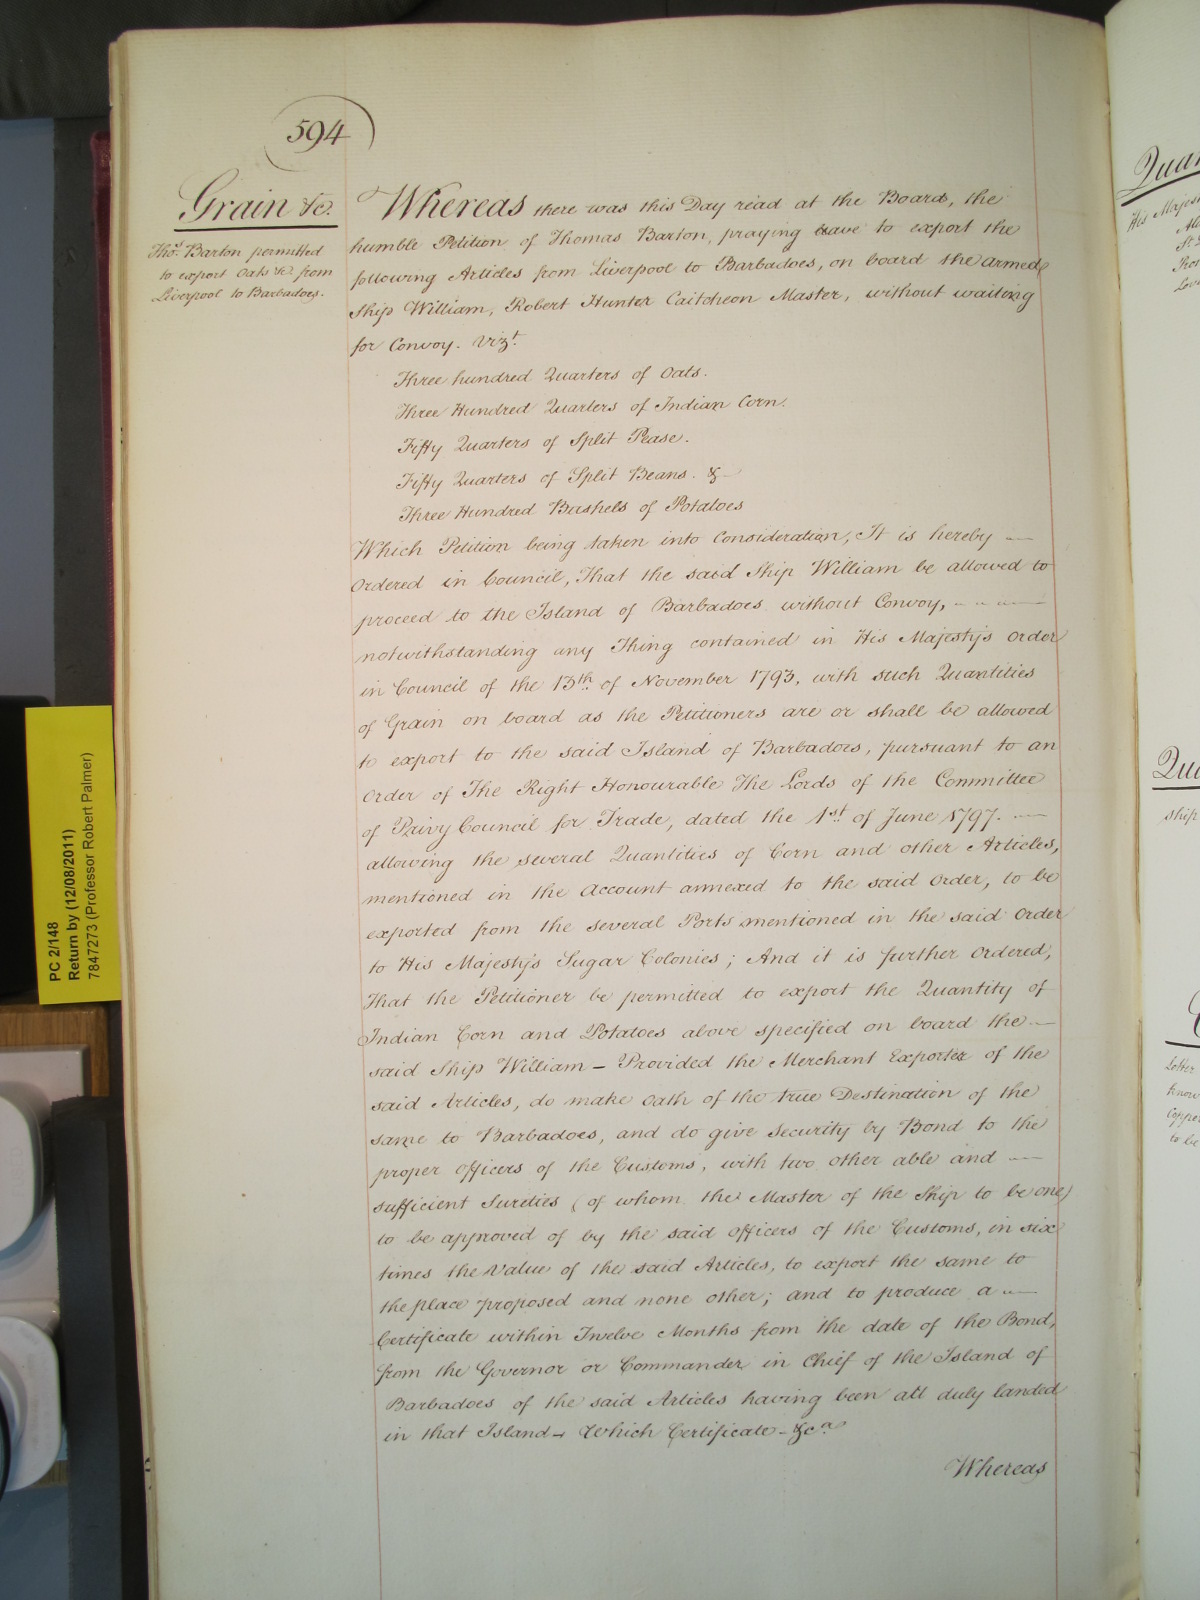 594
Grain &c.
Thos. Barton permitted
to export Oats &c. from
Liverpool to Barbadoes.
Whereas there was this Day read at the Board, the
humble Petition of Thomas Barton, praying leave to export the
following Articles from Liverpool to Barbadoes, on board the armed
Ship William, Robert Hunter Caitcheon Master, without waiting
for Convoy. Vizt.
Three hundred Quarters of Oats.
Three Hundred Quarters of Indian Corn.
Fifty Quarters of Split Pease.
Fifty Quarters of Split Beans. &
Three Hundred Bushels of Potatoes
Which Petition being taken into Consideration, It is hereby
Ordered in Council, That the said Ship William be allowed to
proceed to the Island of Barbadoes without Convoy,
notwithstanding any Thing contained in His Majesty's Order
in Council of the 13th. of November 1793, with such Quantities
of Grain on board as the Petitioners are or shall be allowed
to export to the said Island of Barbadoes, pursuant to an
Order of The Right Honourable The Lords of the Committee
of Privy Council for Trade, dated the 1st. of June 1797.
allowing the several Quantities of Corn and other Articles,
mentioned in the Account annexed to the said Order, to be
exported from the several Ports mentioned in the said Order
to His Majesty's Sugar Colonies; And it is further Ordered,
That the Petitioner be permitted to export the Quantity of
Indian Corn and Potatoes above specified on board the
said Ship William – Provided the Merchant Exporter of the
said Articles, do make Oath of the true Destination of the
same to Barbadoes, and do give Security by Bond to the
proper Officers of the Customs, with two other able and
sufficient Sureties (of whom the Master of the Ship to be one)
to be approved of by the said Officers of the Customs, in six
times the Value of the said Articles, to export the same to
the place proposed and none other; and to produce a
Certificate within Twelve Months from the date of the Bond,
from the Governor or Commander in Chief of the Island of
Barbadoes of the said Articles having been all duly landed
in that Island – Which Certificate – &ca.
Whereas
PC 2/148
Return by (12/08/2011)
7847273 (Professor Robert Palmer)
His Majes
ship
Letter
know
Copper
to be